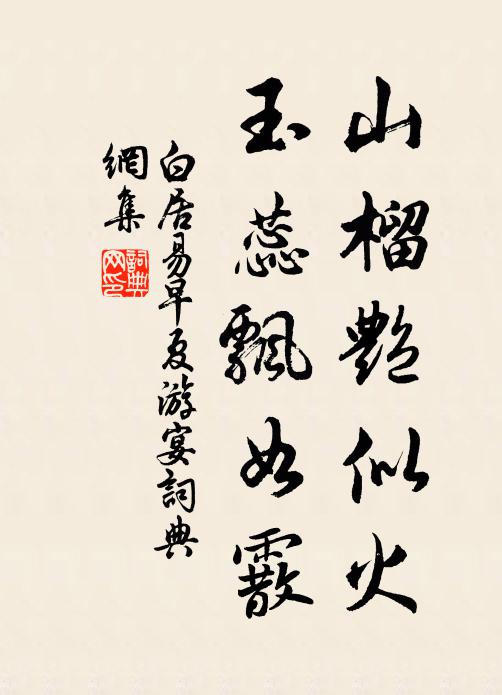 山榴艷似火
玉蕊飄如霰
白居易早夏游宴詞典
網集
詞典
网印